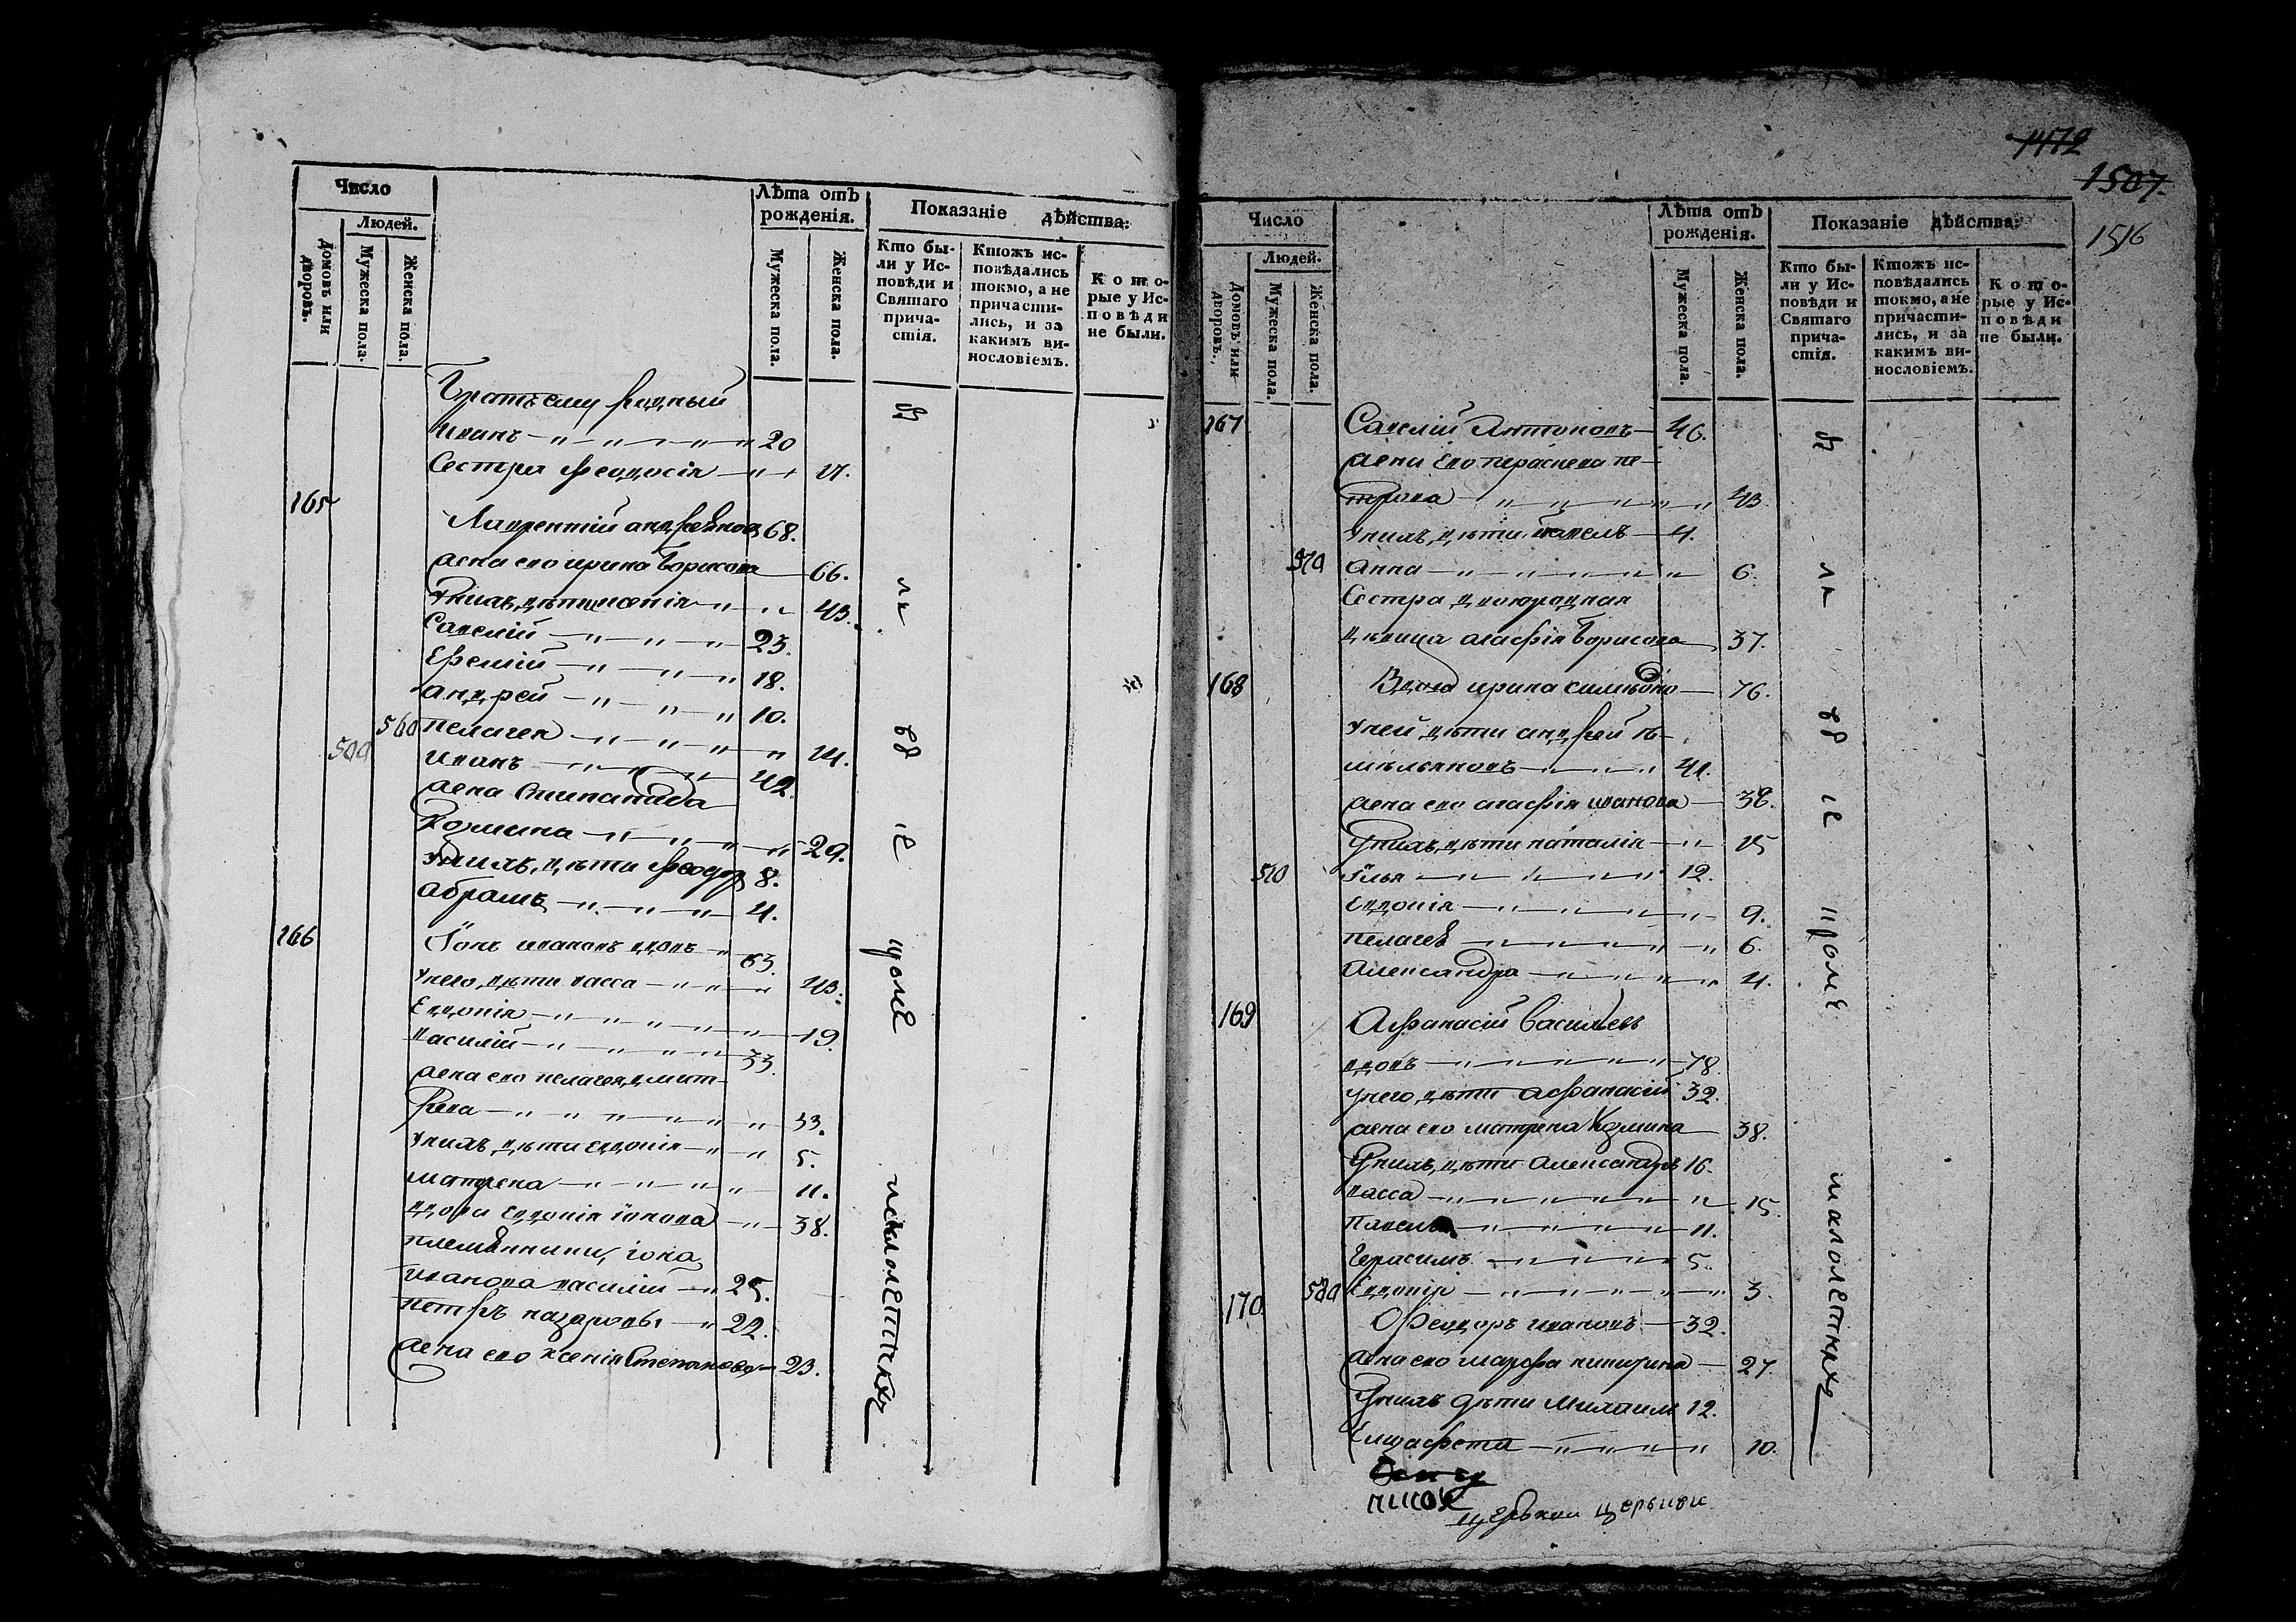 Число
Людей.
Домовъ или дворовъ.
Мужеска пола.
Женска пола.
Лѣта отъ рожденія.
Мужеска пола.
Женска пола.
Показаніе дѣйства:
Кто были у Исповѣди и Святаго причастія.
Ктожъ исповѣдались токмо, а не причастились, и за какимъ винословіемъ.
Которые у Исповѣди не были.
Братъ ему родный
Иванъ 20
Сестра Феодосія 17.
165 Лаврентій андреяновъ 68.
жена ево ирина борисова 66.
Унихъ дѣти 43.
Савелій 23.
Ефемій 18.
андрей 10.
560 пелагея 14.
500 иванъ 42.
жена Степанида
Козмина 29.
Унихъ дѣти Феодоръ 8.
абрамъ 4.
166 Іонъ ивановъ вдовъ 63.
Унего дѣти васса 43.
Евдокія 19.
василій 33.
жена ево пелагея дмит-
рева 33.
Унихъ дѣти евдокія 5.
матрена 11.
вдова евдокія іонова 38.
племянники, іона
иванова василій 25.
петръ назаровы 22.
жена ево ксенія Степанова 23.
всѣ
малолетныхъ
1472
1507.
1516
Число
Людей.
Домовъ или дворовъ.
Мужеска пола.
Женска пола.
Лѣта отъ рожденія.
Мужеска пола.
Женска пола.
Показаніе дѣйства:
Кто были у Исповѣди и Святаго причастія.
Ктожъ исповѣдались токмо, а не причастились, и за какимъ винословіемъ.
Которые у Исповѣди не были.
167 Савелій Антоновъ 46.
жена Ево параскева пе-
трова 43.
Унихъ дѣти павелъ 4.
570 Анна 6.
Сестра двоюродная
дѣвица агафія борисова 37.
168 Вдова ирина 76.
Уней дѣти андрей ѣ-
мельяновъ 41.
жена ево агафія иванова 38.
Унихъ дѣти наталія 15
510 Илья 12.
Евдокія 9.
пелагея 6.
Александра 4.
169 Афанасій Васильевъ
вдовъ 78.
Унего дѣти афанасій 32.
жена ево матрена Козмина 38.
Унихъ дѣти александръ 16.
васса 15.
павелъ 11.
Герасимъ 5.
580 Евдокія 3.
170 Феодоръ ивановъ 32.
жена ево марфа никитина 27.
Унихъ дѣти Михаилъ 12.
Елизафета 10.
кромѣ
малолетныхъ